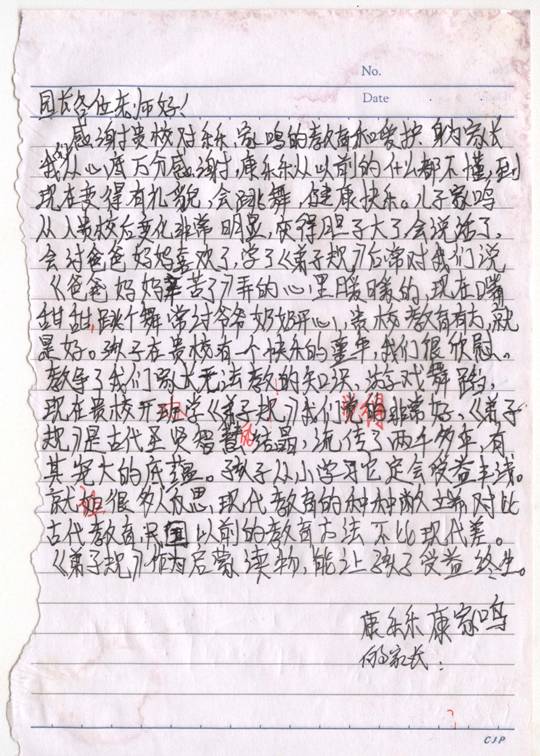 No.
Date
园长各位老师好！
感谢贵校对乐乐,家鸣的教育和爱护 身为家长
我从心底万分感谢,康乐乐从以前的什么都不懂,到
现在变得有礼貌,会跳舞,健康快乐。儿子家鸣
从入贵校后变化非常明显,变得胆子大了,会说话了,
会讨爸爸妈妈喜欢了,学了《弟子规》后常对我们说,
《爸爸妈妈辛苦了》弄的心里暖暖的,现在嘴
甜甜,跳个舞常讨爷爷奶奶开心,贵校教育有方,就
是好。孩子在贵校有一个快乐的童年,我们很欣慰。
教导了我们家长无法教的知识,游戏舞蹈,
现在贵校开班学《弟子规》我们觉得非常好,《弟子
规》是古代圣贤智慧结晶,流传了两千多年,有
其宠大的底蕴。孩子从小学习它定会受益无浅。
就让很多人反思,现代教育的种种敝端,对比
古代教育,民国以前的教育方法不比现代差。
《弟子规》作为启蒙读物,能让孩子受益终生。
康乐乐康家鸣
的家长:
CJP